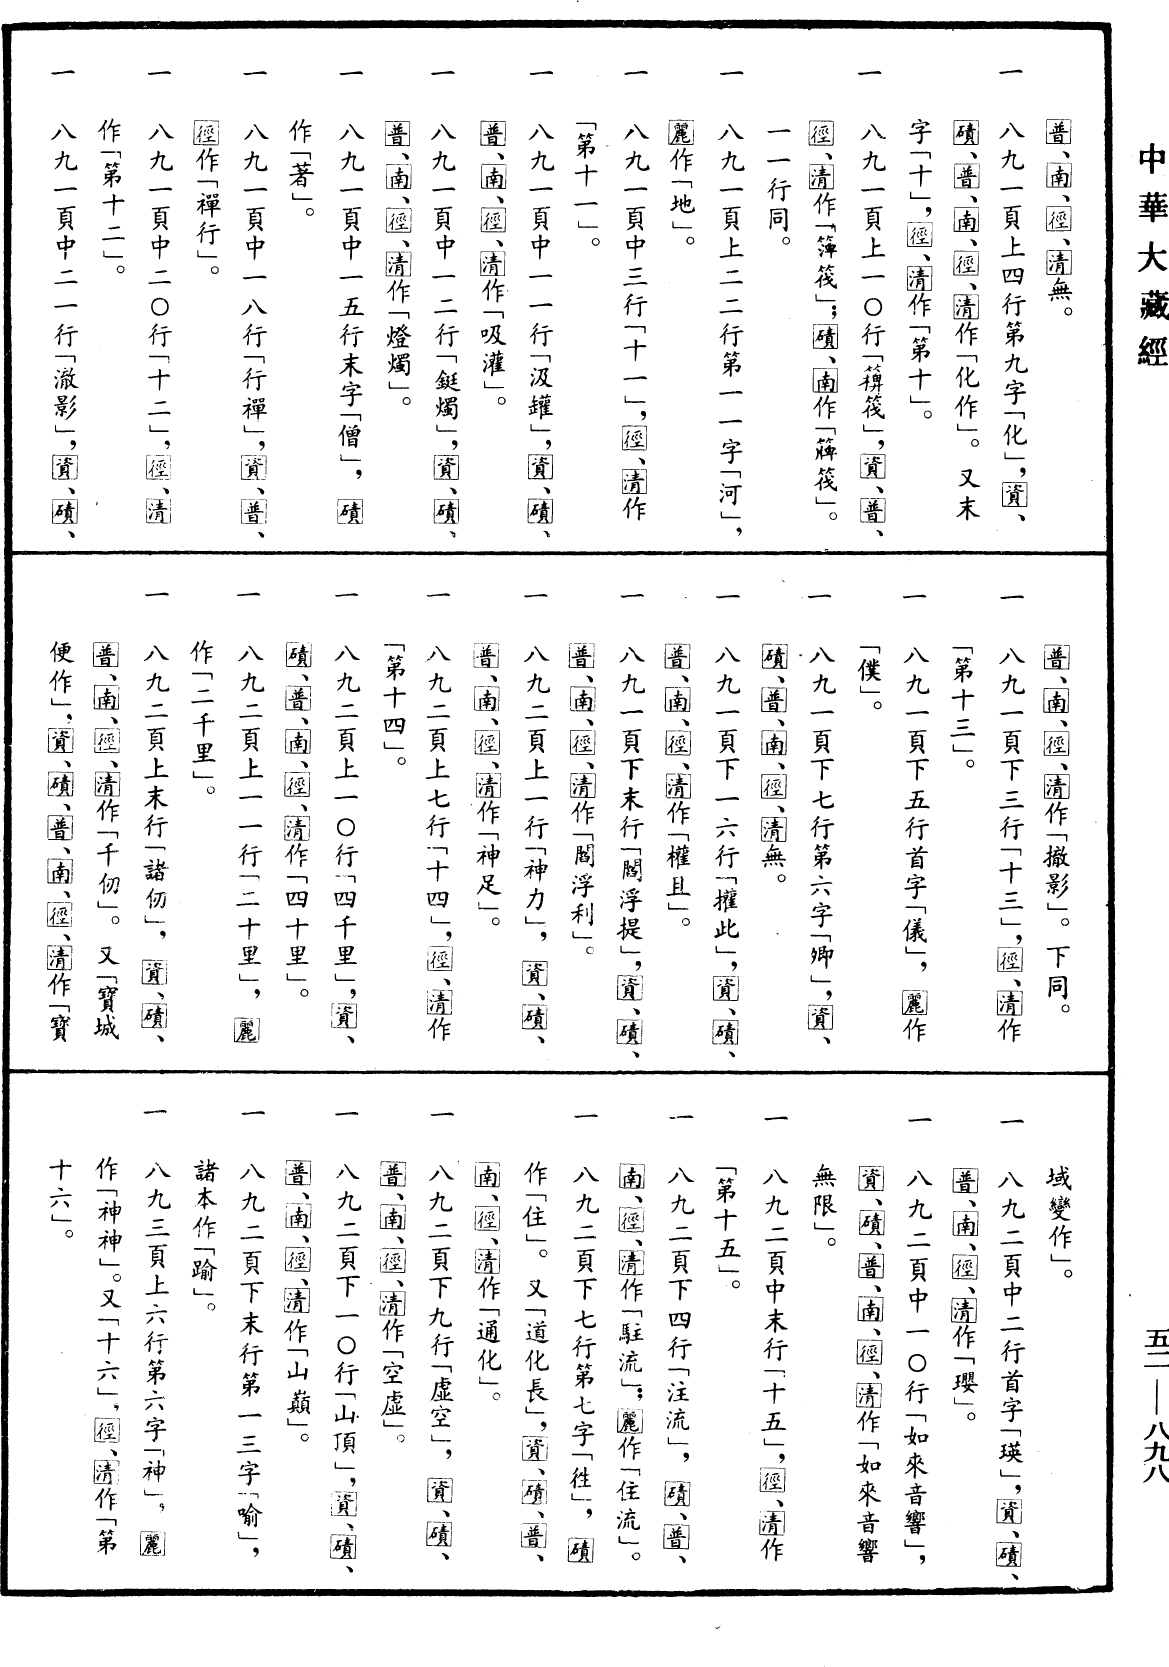 中華大藏經
普、南、徑、清無。
一 八九一頁上四行第九字「化」，資、
磧、普、南、徑、清作「化作」。又末
字「十」，徑、清作「第十」。
一 八九一頁上一〇行「簰筏」，資、普、
徑、清作「簿筏」；磧、南作「簰筏」。
一一行同。
一 八九一頁上二二行第一一字「河」，
麗作「地」。
一 八九一頁中三行「十一」，徑、清作
「第十一」。
一 八九一頁中一一行「汲罐」，資、磧、
普、南、徑、清作「吸灌」。
一 八九一頁中一二行「鋌燭」，資、磧、
普、南、徑、清作「燈燭」。
一 八九一頁中一五行末字「僧」，磧
作「著」。
一 八九一頁中一八行「行禪」，資、普、
徑作「禪行」。
一 八九一頁中二〇行「十二」，徑、清
作「第十二」。
一 八九一頁中二一行「澈影」，資、磧、
普、南、徑、清作「撤影」。下同。
一 八九一頁下三行「十三」，徑、清作
「第十三」。
一 八九一頁下五行首字「儀」，麗作
「僕」。
一 八九一頁下七行第六字「卿」，資、
磧、普、南、徑、清無。
一 八九一頁下一六行「攉此」，資、磧、
普、南、徑、清作「權且」。
一 八九一頁下末行「閻浮提」，資、磧、
普、南、徑、清作「閻浮利」。
一 八九二頁上一行「神力」，資、磧、
普、南、徑、清作「神足」。
一 八九二頁上七行「十四」，徑、清作
「第十四」。
一 八九二頁上一〇行「四千里」，資、
磧、普、南、徑、清作「四十里」。
一 八九二頁上一一行「二十里」，麗
作「二千里」。
一 八九二頁上末行「諸仞」，資、磧、
普、南、徑、清作「千仞」。又「寶城
便作」，資、磧、普、南、徑、清作「寶
域變作」。
一 八九二頁中二行首字「瑛」，資、磧、
普、南、徑、清作「瓔」。
一 八九二頁中一〇行「如來音響」，
資、磧、普、南、徑、清作「如來音響
無限」。
一 八九二頁中末行「十五」，徑、清作
「第十五」。
一 八九二頁下四行「注流」，磧、普、
南、徑、清作「駐流」；麗作「住流」。
一 八九二頁下七行第七字「徃」，磧
作「住」。又「道化長」，資、磧、普、
南、徑、清作「通化」。
一 八九二頁下九行「虛空」，資、磧、
普、南、徑、清作「空虛」。
一 八九二頁下一〇行「山頂」，資、磧、
普、南、徑、清作「山巔」。
一 八九二頁下末行第一三字「喻」，
諸本作「踰」。
一 八九三頁上六行第六字「神」，麗
作「神神」。又「十六」，徑、清作「第
十六」。
五二——八九八